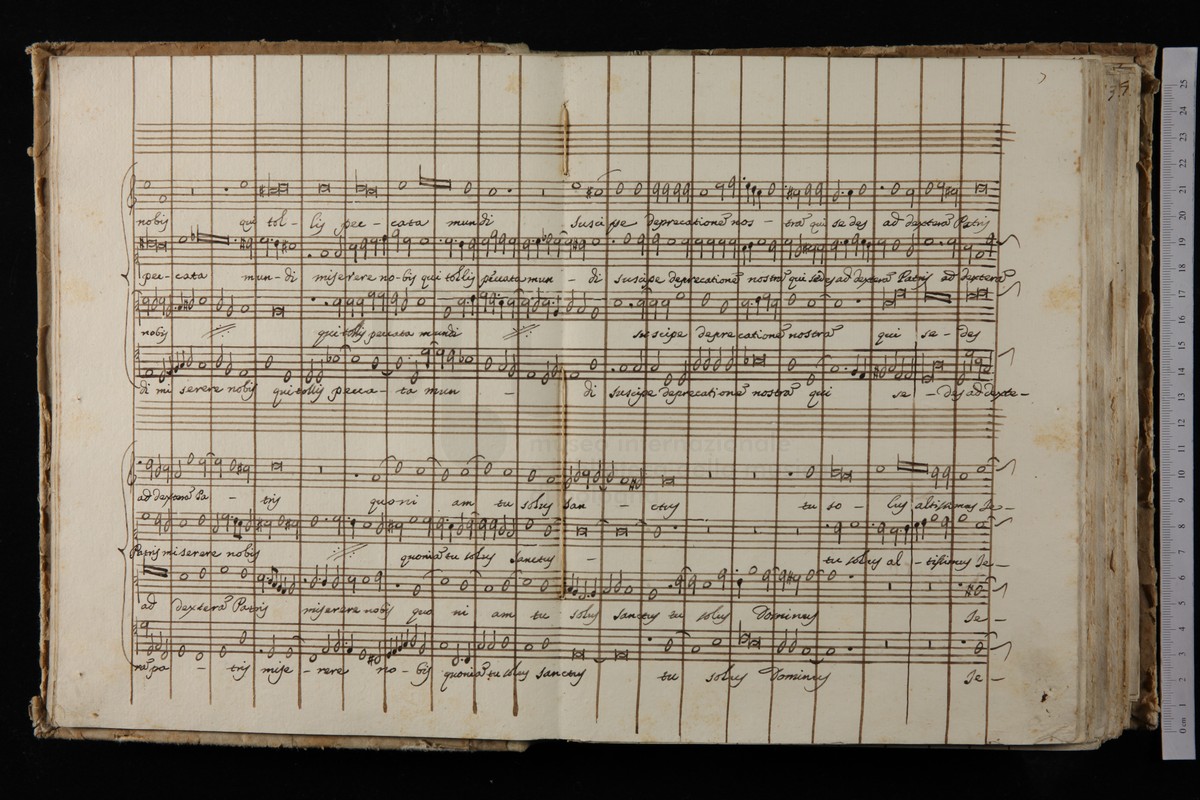 nobis qui tol - lis pec - cata mundi Susci pe deprecationẽ nos - trã qui sedes ad dexterã Patris
pec - cata mun - di miserere no - bis qui tollis peccata mun - di suscipe deprecationẽ nostrã qui sedes ad dexterã Patris ad dexterã
nobis qui tollis peccata mundi suscipe deprecationẽ nostrã qui se - des
di mi serere nobis qui tollis pecca - ta mun - di suscipe deprecationẽ nostrã qui se - des ad dexte -
museo internazionale
ad dexterã Pa - tris quoni am tu solus San - ctus tu so - lus altissimus Je -
Patris miserere nobis quoniã tu solus Sanctus - tu solus al - tissimus Je -
ad dexterã Patris miserere nobis quo ni am tu solus Sanctus tu solus Dominus Je -
rã Pa - tris mise - rere no - bis quoniã tu solus Sanctus tu solus Dominus Je -
0 cm 1 2 3 4 5 6 7 8 9 10 11 12 13 14 15 16 17 18 19 20 21 22 23 24 25